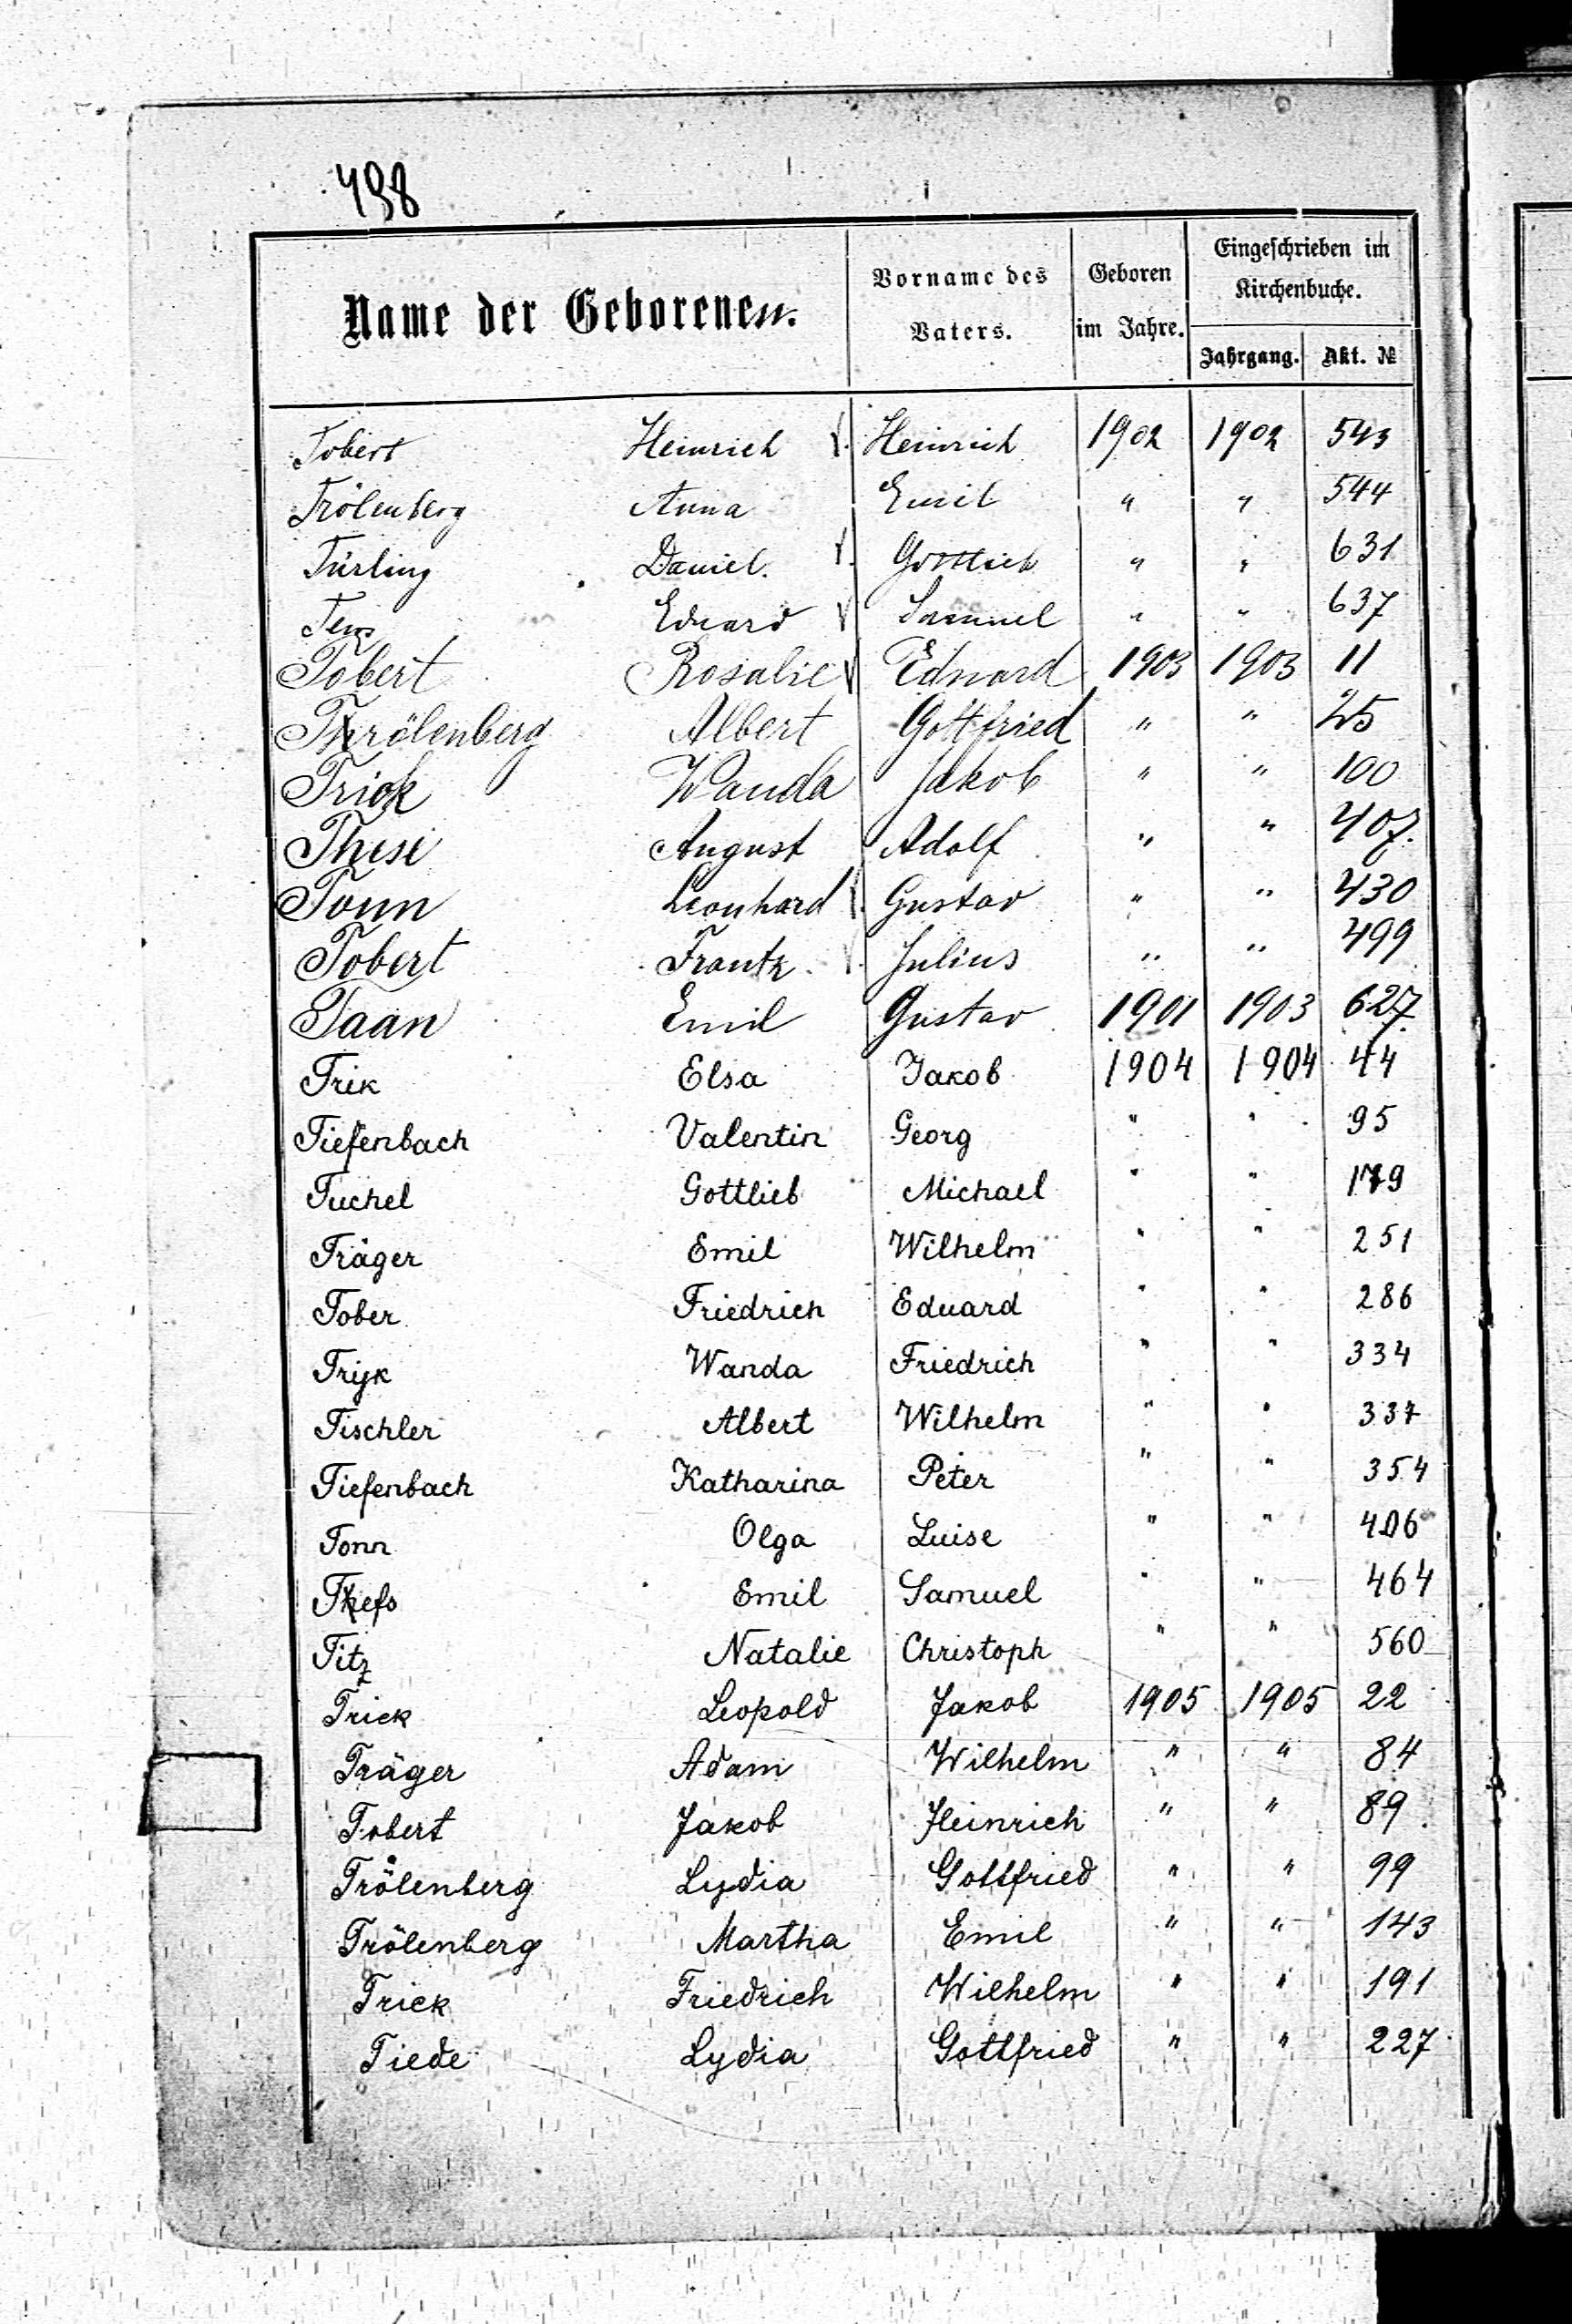 498
Name der Geborenen.
Vorname des Vaters.
Geboren im Jahre.
Eingeschrieben im Kirchenbuche.
Jahrgang.
Akt. №
Tobert Heinrich √. Heinrich 1902 1902 543
Trölenberg Anna Emil " " 544
Türling Daniel. √. Gottlieb " " 631
Eduard √ Samuel " " 637
Tobert Rosalie √ Eduard 1903 1903 11
Trölenberg Albert Gottfried " " 25
Trick Wanda Jakob " " 100
These August Adolf " " 407.
Tonn Leonhard √. Gustav " " 430
Tobert Frantz √. Julius " " 499
Taan Emil Gustav 1901 1903 627
Trik Elsa Jakob 1904 1904 44
Tiefenbach Valentin Georg " " 95
Tuchel Gottlieb Michael " " 179
Träger Emil Wilhelm " " 251
Tober Friedrich Eduard " " 286
Trijk Wanda Friedrich " " 334
Tischler Albert Wilhelm " " 337
Tiefenbach Katharina Peter " " 354
Tonn Olga Luise " " 406
Emil Samuel " " 464
Titz Natalie Christoph " " 560
Trick Leopold Jakob 1905 1905 22
Träger Adam Wilhelm " " 84
Tobert Jakob Heinrich " " 89
Trölenberg Lydia Gottfried " " 99
Trölenberg Martha Emil " " 143
Trick Friedrich Wilhelm " " 191
Tiede Lydia Gottfried " " 227